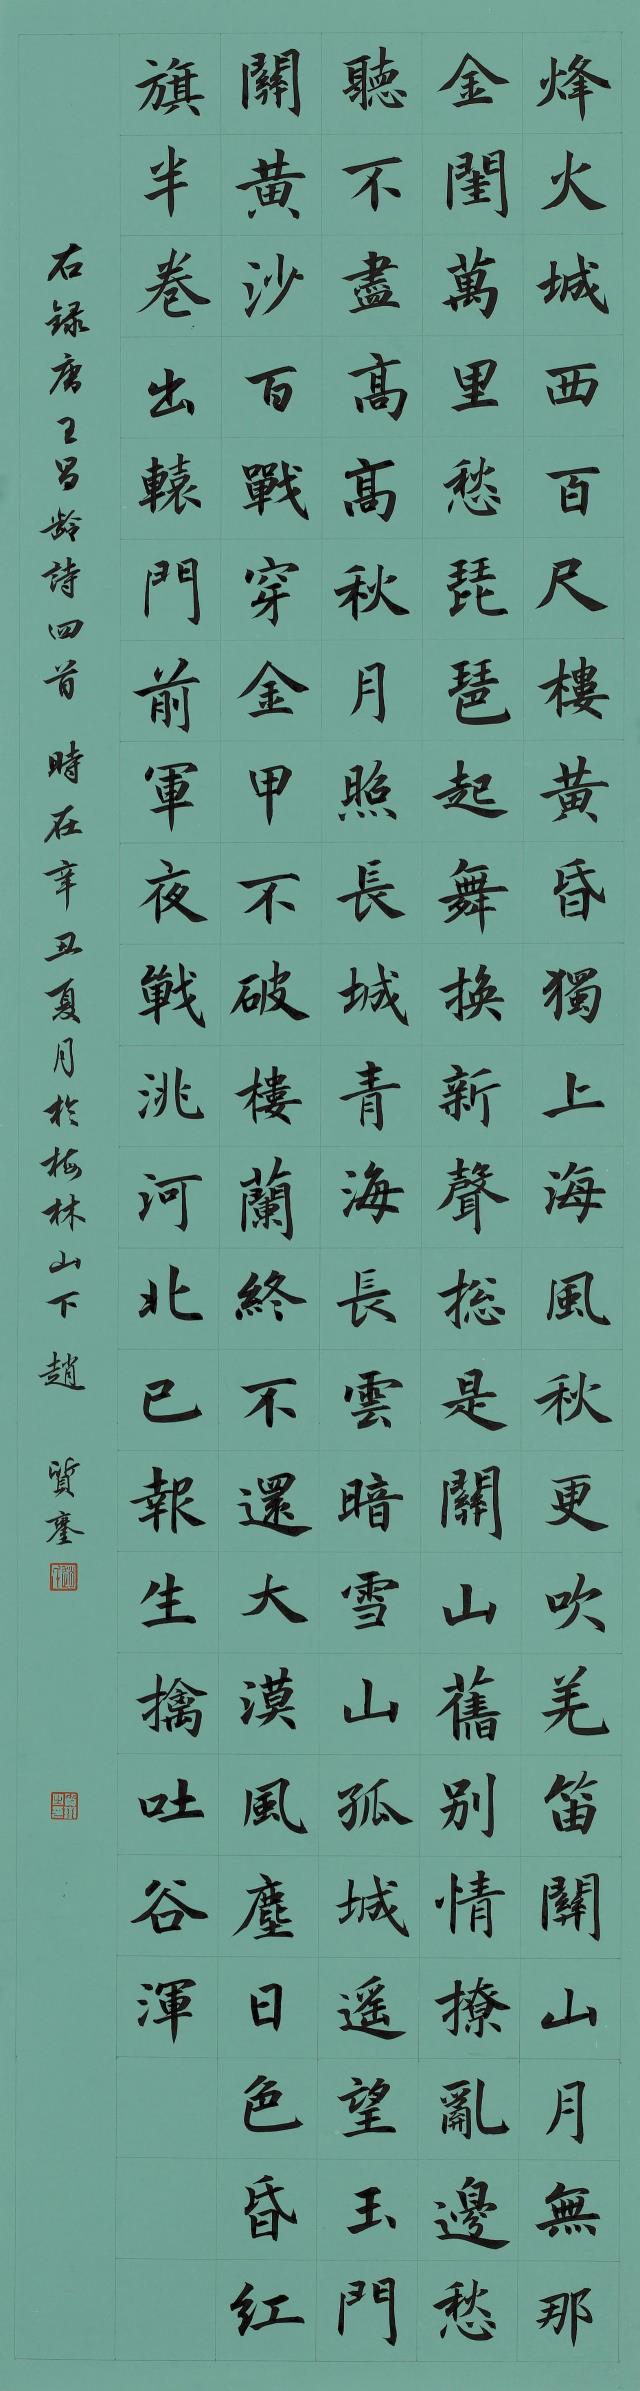 烽火城西百尺樓黃昏獨上海風秋更吹羌笛關山月無那
金閨萬里愁琵琶起舞換新聲總是關山舊別情撩亂邊愁
聽不盡高高秋月照長城青海長雲暗雪山孤城遥望玉門
關黃沙百戰穿金甲不破樓蘭終不還大漠風塵日色昏红
旗半卷出轅門前軍夜戰洮河北已報生擒吐谷渾
右録唐王昌齡詩四首 時在辛丑夏月於梅林山下 趙質鏊